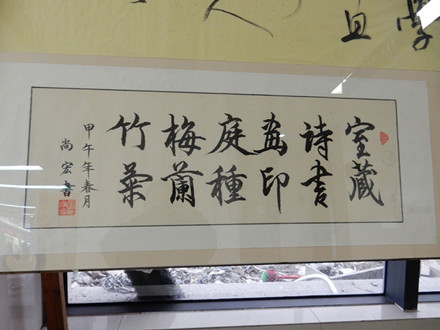 室藏
詩書
畫印
庭種
梅蘭
竹菊
甲午年春月
尚宏書